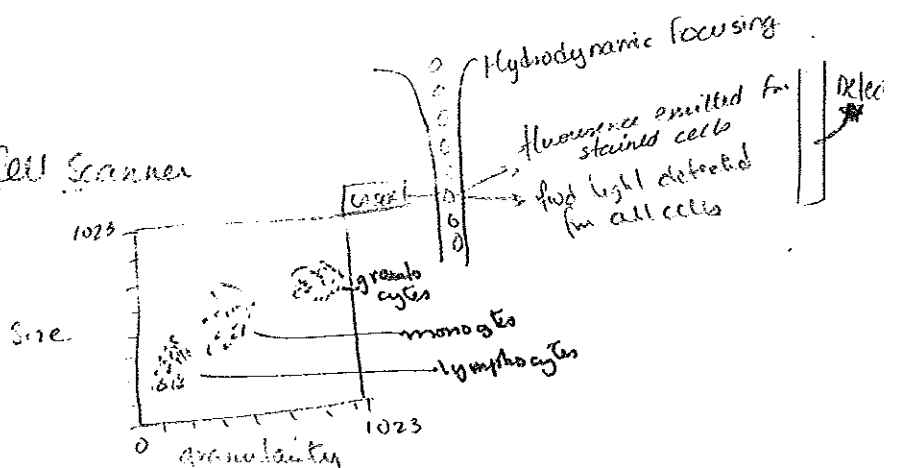 Hydrodynamic Focusing
fluoresence emitted for
stained cells
fwd light detected
for all cells
Detec
Cell Scanner
1023
Size
granulo
cytes
monocytes
lymphocytes
0
1023
granularity